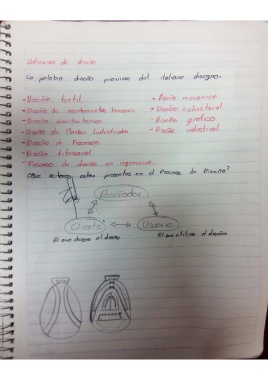 Definicion de diseño
La palabra diseño proviene del italiano disegno.
- Diseño textil
- Diseño mecanico
- Diseño de asentamientos humanos
- Diseño estructural
- Diseño arquitectonico
- Diseño grafico
- Diseño de Plantas Industriales
- Diseño industrial.
- Diseño de Procesos
- Diseño Artesanal
- Proceso de diseño en ingenieria.
¿Que actores estan presentes en el Proceso de Diseño?
Diseñador
Cliente
Usuario
El que desea el diseño
El que utiliza el diseño